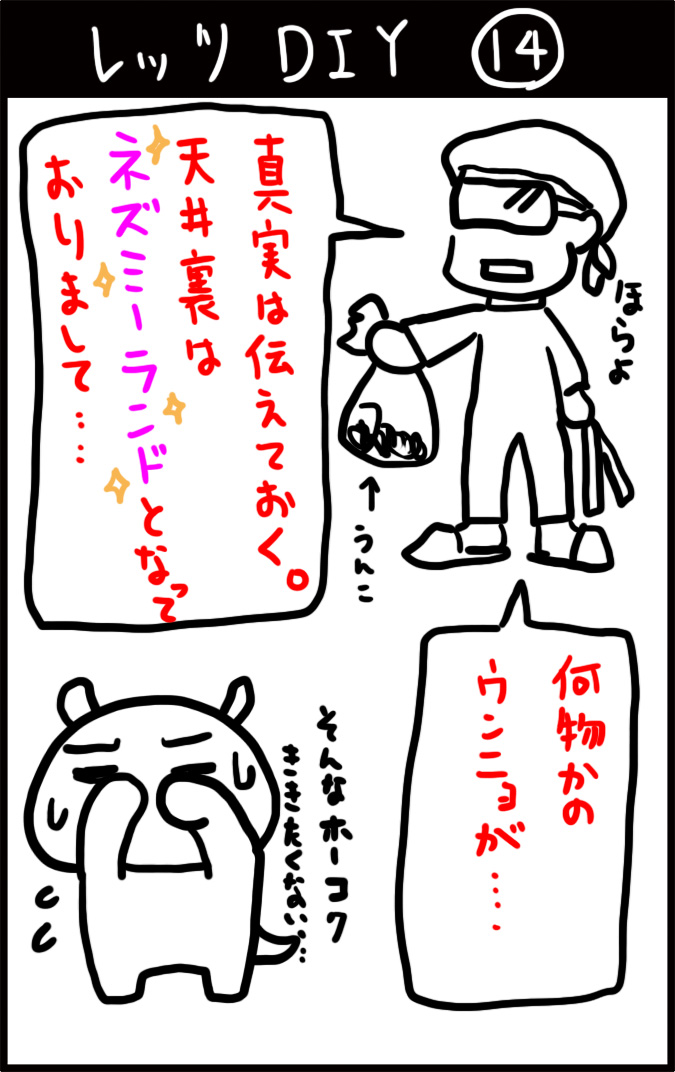 レッツ DIY ⑭
真実は伝えておく。
天井裏は
ネズミーランドとなって
おりまして‥‥
ほらよ
↑うんこ
何物かの
ウンニョが‥‥
そんなホーコク
ききたくない‥‥